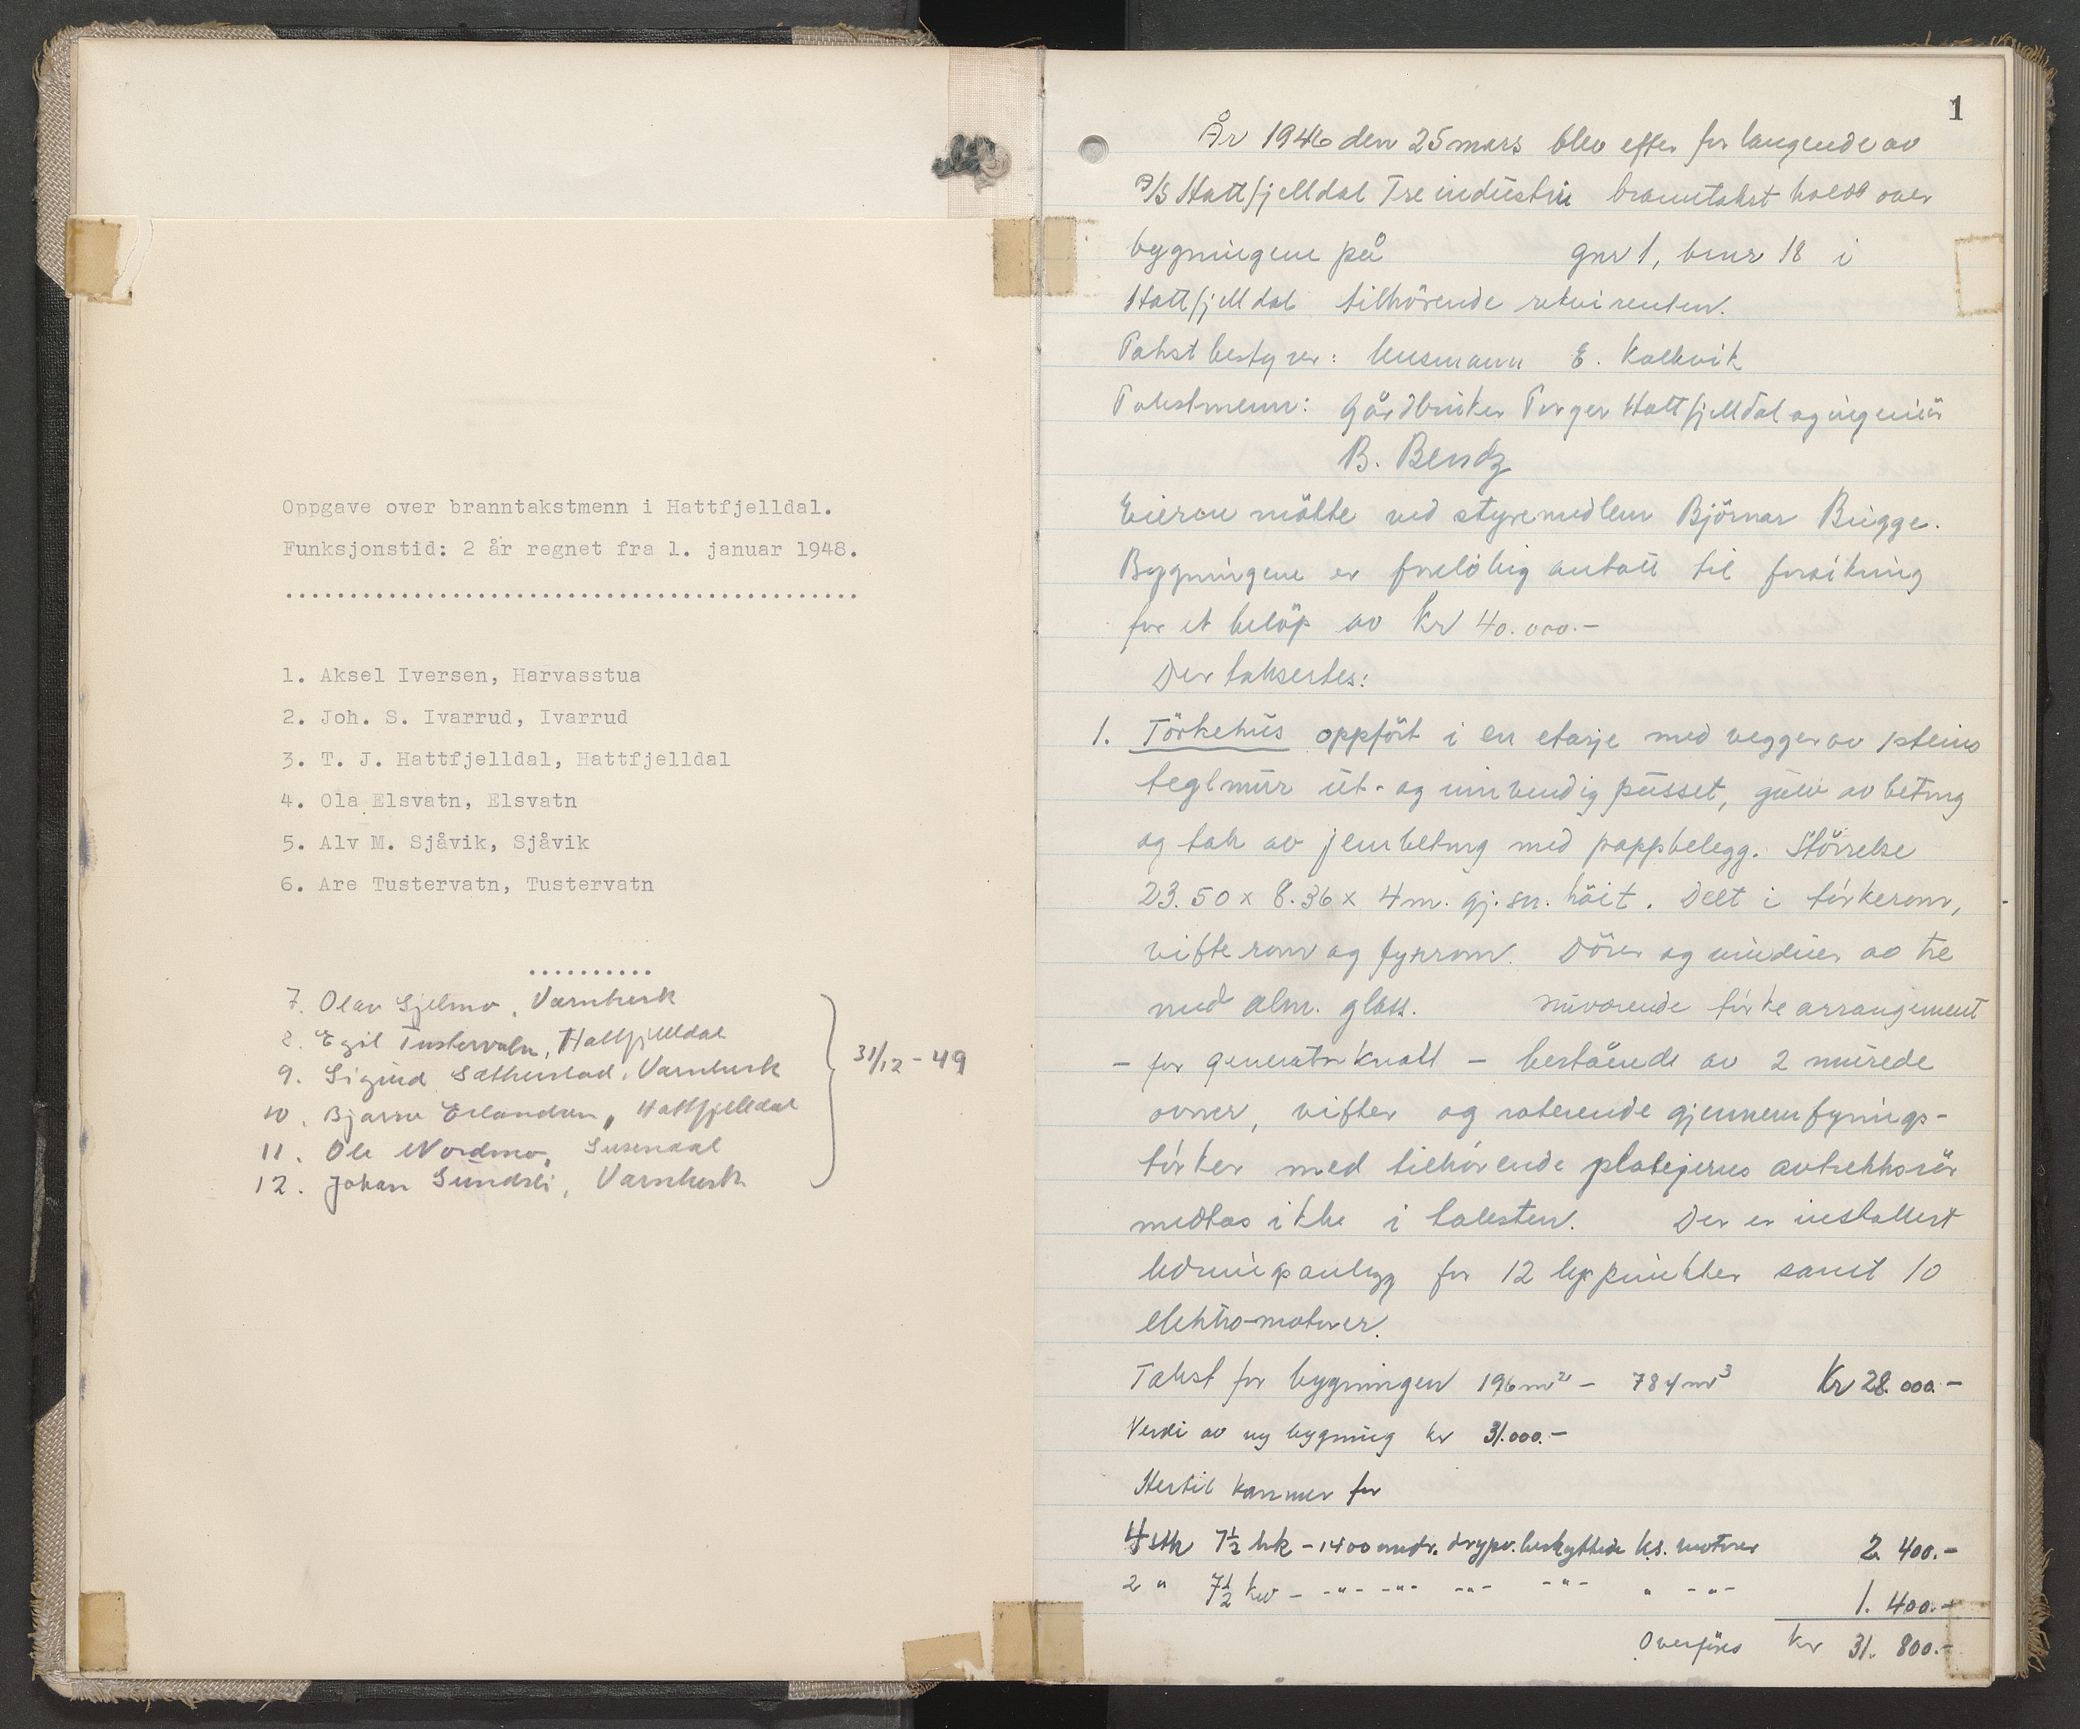 Oppgave over branntakstmenn i Hattfjelldal.
Funksjonstid: 2 år regnet fra 1. januar 1948.
1. Aksel Iversen, Harvasstua
2. Joh. S. Ivarrud, Ivarrud
3. T. J. Hattfjelldal, Hattfjelldal
4. Ola Elsvatn, Elsvatn
5. Alv M. Sjåvik, Sjåvik
6. Are Tustervatn, Tustervatn
7. Olav Sjelmo, Varntresk
8. Egil Tustervatn, Hattfjelldal
9. Sigurd Sætherstad, Varntresk
10. Bjarne Erlandsen, Hattfjelldal
11. Ole Nordmo, Susendal
12. Johan Sundsli, Varntresk
31/12-49
1
År 1946 den 25 mars blev efter forlangende av
A/S Hattfjelldal Treindustri branntakst holdt over
bygningene på gnr 1, bnr 18 i
Hattfjelldal tilhörende rekvirenten.
Takstbestyrer: lensmann E. Kalkvik
Takstmenn: Gårdbruker Torger Hattfjelldal og ingeniör
B. Bendz
Eieren mötte ved styremedlem Björnar Brügge.
Bygningene er forelöbig antatt til forsikring
for et belöp av Kr 40.000.-
Der taksertes:
1. Törkehus oppfört i en etasje med vegger av 1 steins
teglmur ut- og innvendig pusset, gulv av betong
og tak av jernbetong med pappbelegg. Störrelse
23.50 x 8.36 x 4 m. gj.sn. höit. Delt i törkerom,
vifterom og fyrrom. Dörer og vinduer av tre
med alm. glass. Nuværende törkearrangement
- for generatorknott - bestående av 2 murede
ovner, vifter og roterende gjennemfyrings-
törker med tilhörende platejerns avtrekksrör
medtas ikke i taksten. Der er installert
ledningsanlegg for 12 lyspunkter samt 10
elektro-motorer.
Takst for bygningen 196 m² - 784 m³ Kr 28.000.-
Verdi av ny bygning kr 31.000.-
Hertil kommer for
4 stk 7½ hk - 1400 omdr. drypv. beskyttede k.s. motorer 2.400.-
2 " 7½ kw - -"- -"- -"- -"- " -"- 1.400.-
Overföres kr 31.800.-